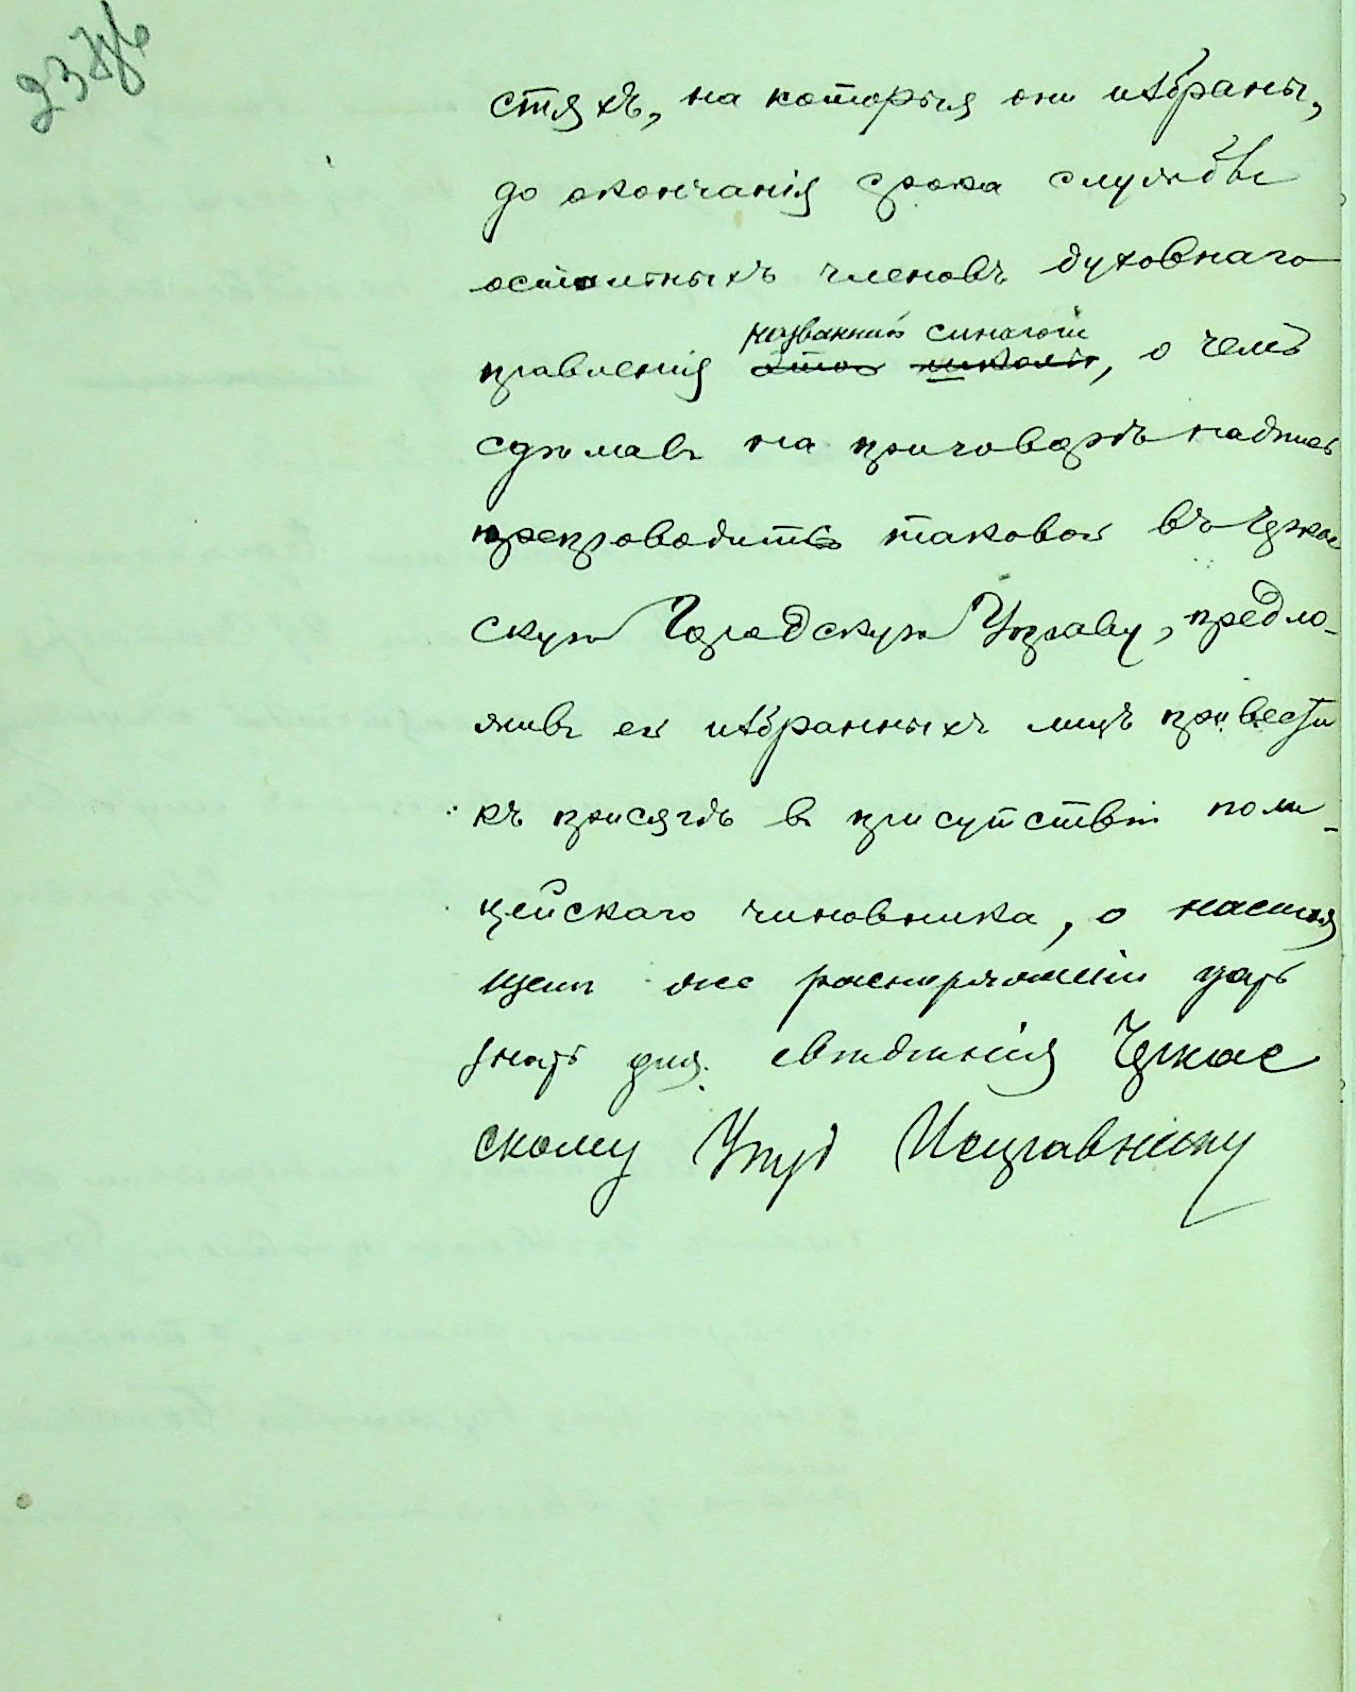 стяхъ, на которыя они избраны,
до окончанія срока службы
остальныхъ членовъ духовнаго
названной синагоги
правленія этой школы, о чемъ
сдѣлавъ на приговорѣ надпись
препроводить таковой въ Черкас
скую Городскую Управу, предло-
живъ ей избранныхъ лицъ привести
къ присягѣ въ присутствіи поли-
цейскаго чиновника, о настоя
щемъ же распоряженіи дать
знать для свѣдѣнія Черкас
скому Уѣзд Исправнику